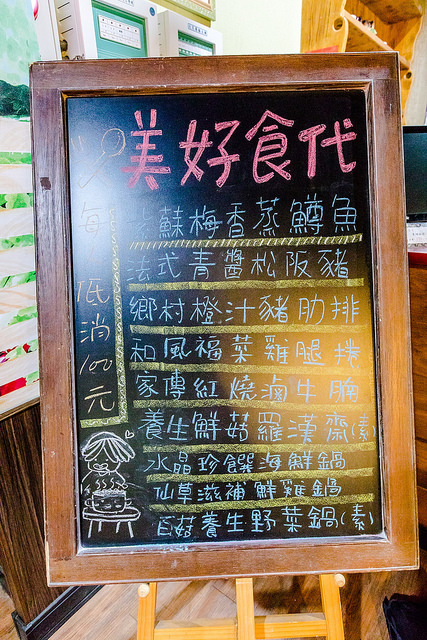 美好食代
蘇梅香蒸鱒魚
法式青醬松阪豬
鄉村橙汁豬肋排
和風福菜雞腿捲
家傳紅燒滷牛腩
養生鮮菇羅漢齋(素)
水晶珍饌海鮮鍋
仙草滋補鮮雞鍋
百菇養生野菜鍋(素)
每
低消100元